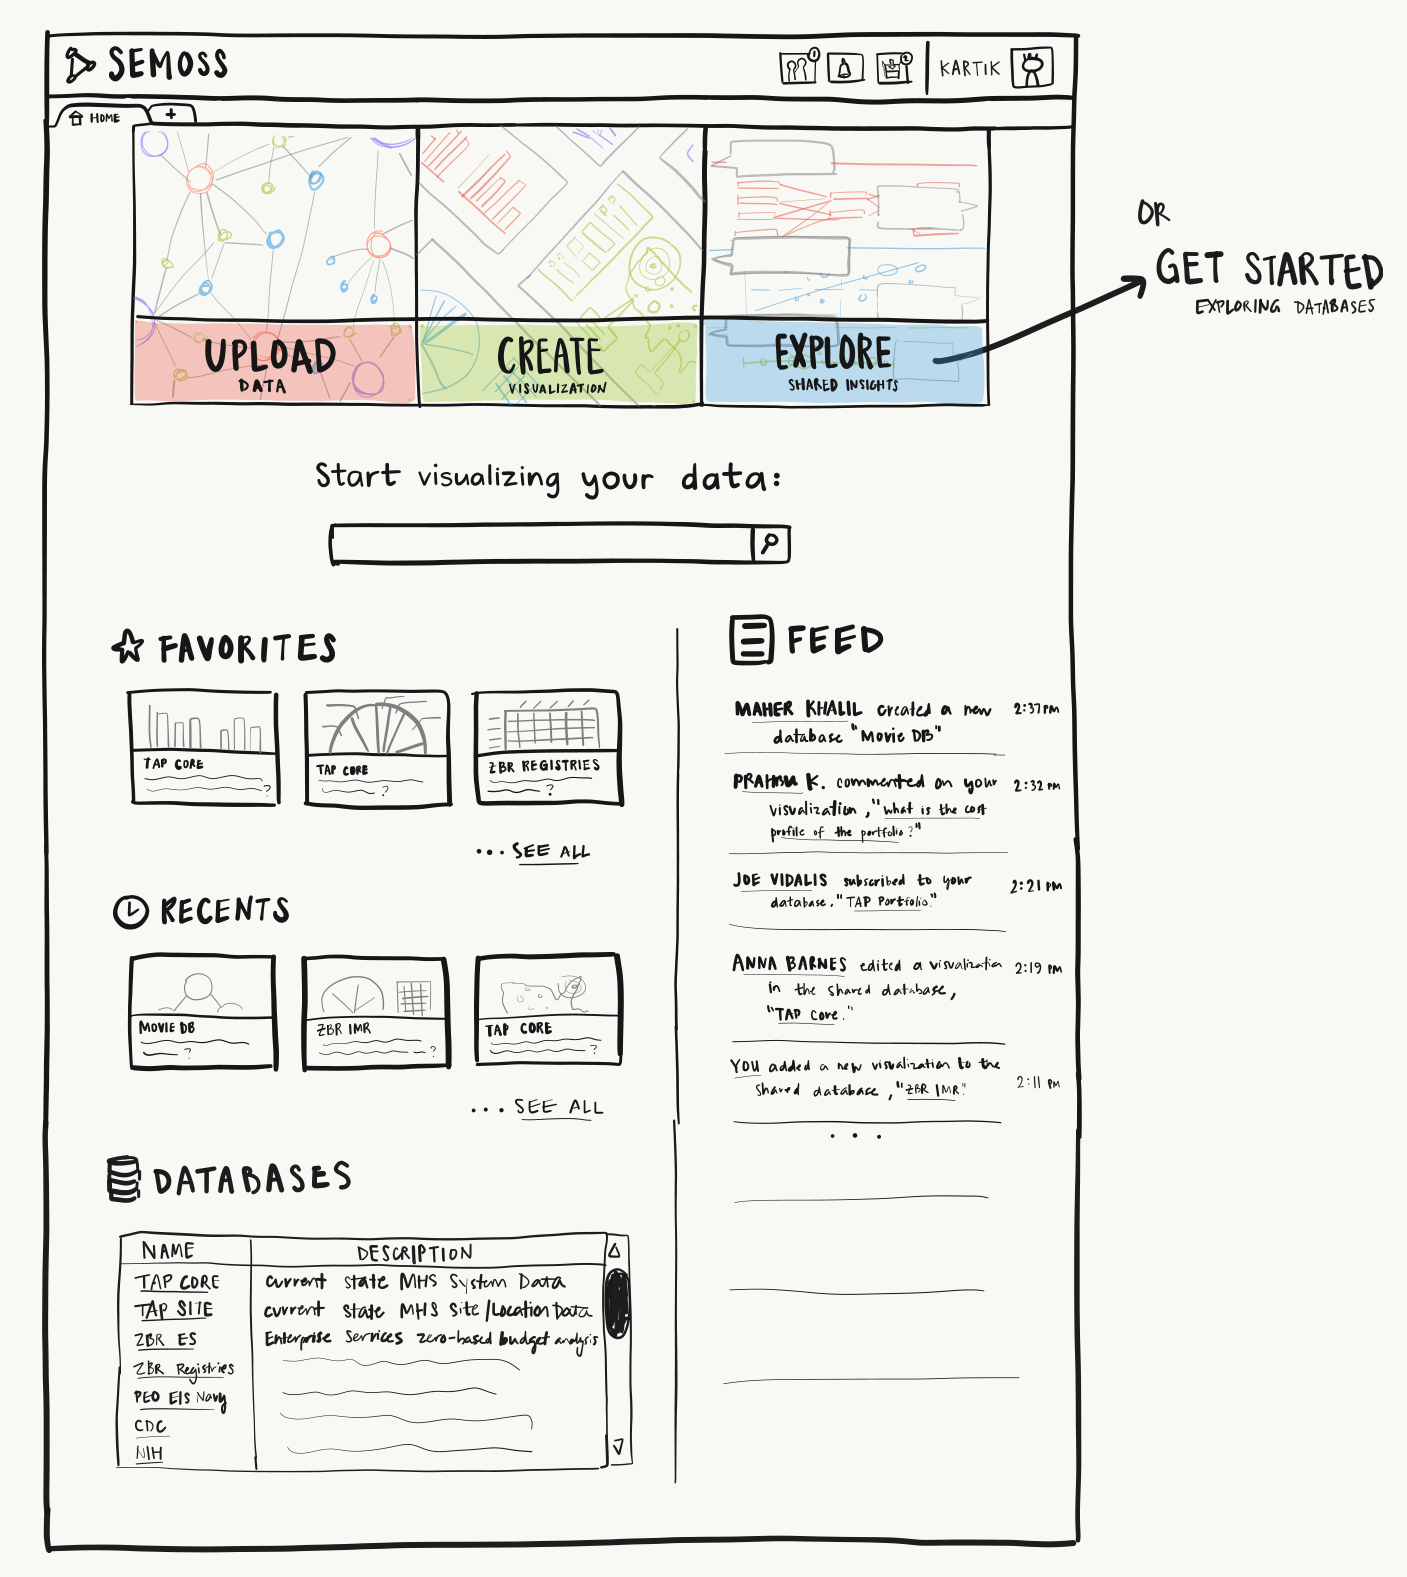 SEMOSS
1
2
KARTIK
HOME
+
OR
GET STARTED
EXPLORING DATABASES
UPLOAD
DATA
CREATE
VISUALIZATION
EXPLORE
SHARED INSIGHTS
Start visualizing your data:
FAVORITES
TAP CORE
?
TAP CORE
?
ZBR REGISTRIES
?
... SEE ALL
RECENTS
MOVIE DB
?
ZBR IMR
?
TAP CORE
?
... SEE ALL
DATABASES
NAME DESCRIPTION
TAP CORE current state MHS System Data
TAP SITE current state MHS Site/Location Data
ZBR ES Enterprise Services zero-based budget analysis
ZBR Registries
PEO EIS Navy
CDC
NIH
FEED
MAHER KHALIL created a new 2:37 PM
database "Movie DB"
K. commented on your 2:32 PM
visualization, "what is the cost
profile of the portfolio?"
JOE VIDALIS subscribed to your 2:21 PM
database, "TAP Portfolio."
ANNA BARNES edited a visualization 2:19 PM
in the shared database,
"TAP Core."
YOU added a new visualization to the
shared database, "ZBR IMR." 2:11 PM
...